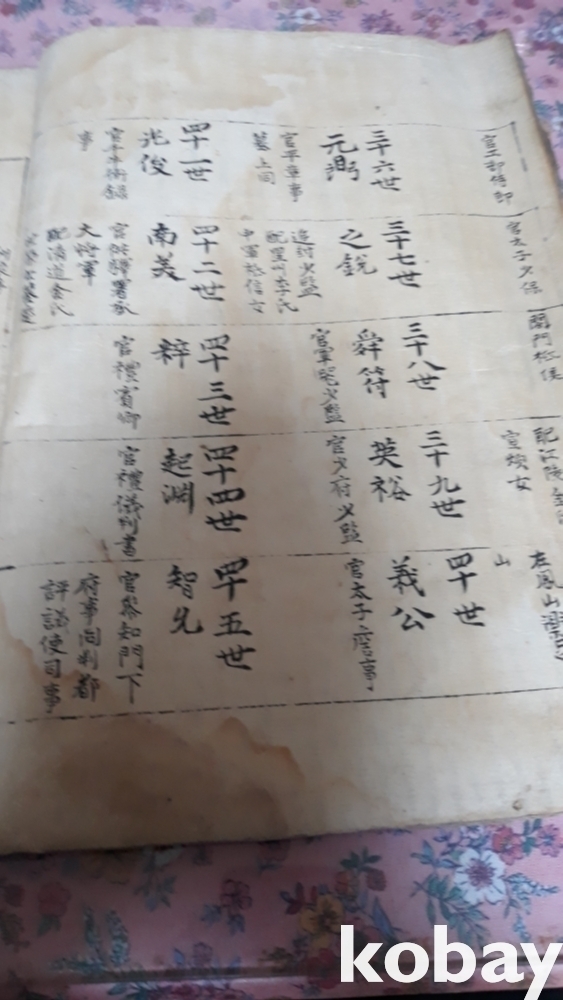 官工部侍郎
官太子少保
閤門祗候
配江陵金氏
室女
左鳳山
山
三十六世
元弼
官平章事
墓上同
三十七世
之銳
追封少監
配里李氏
中軍信女
三十八世
舜符
官軍器少監
三十九世
英裕
官少府少監
四十世
義公
官太子詹事
四十一世
兆俊
官千牛衛錄
事
四十二世
南美
官供驛署丞
大將軍
配清道金氏
四十三世
粹
官禮賓卿
四十四世
起淵
官禮儀判書
四十五世
智允
官參知門下
府事同判都
評議使司事
kobay